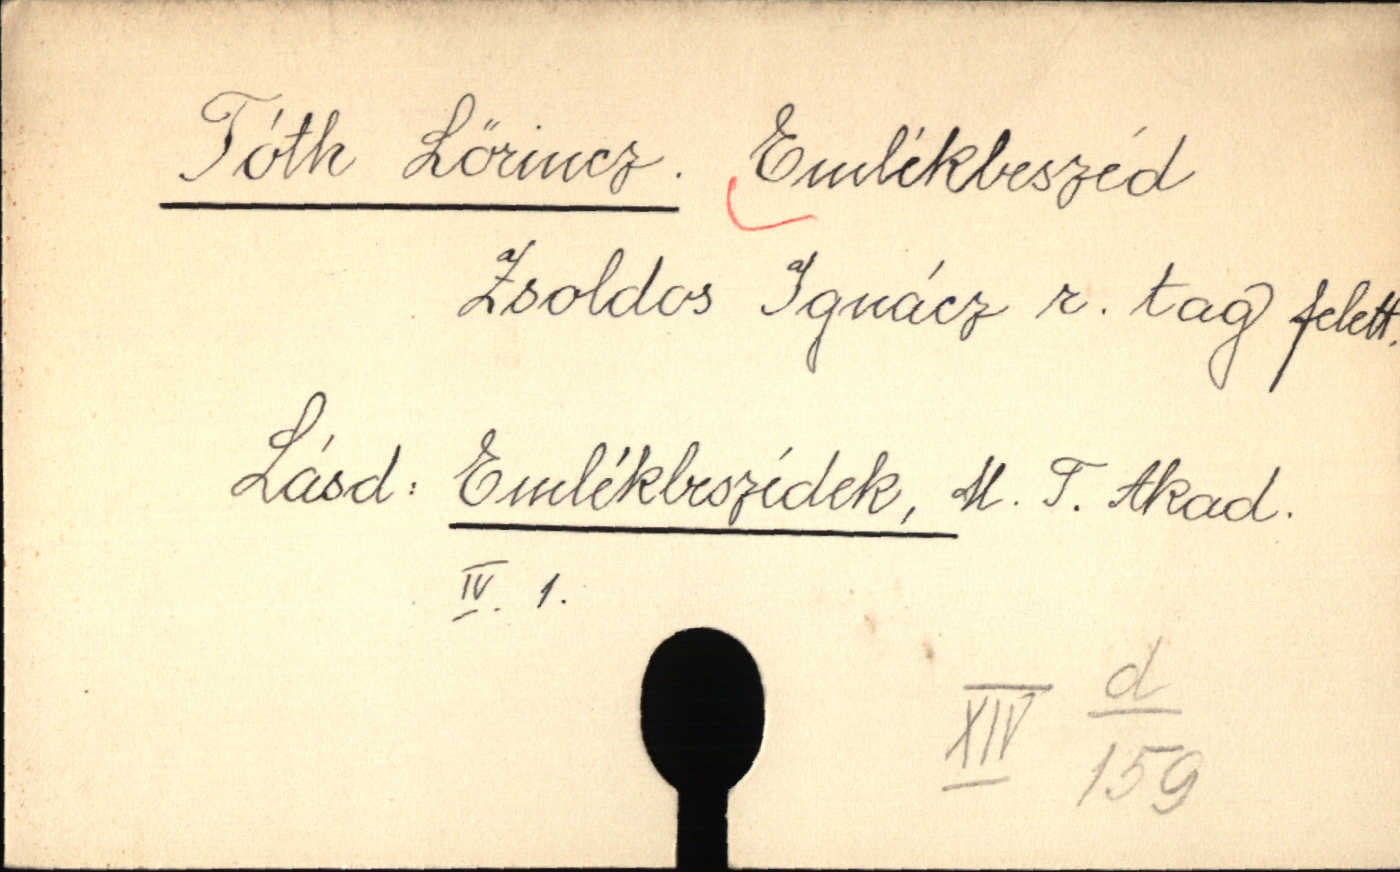 Tóth Lőrincz. Emlékbeszéd
Zsoldos Ignácz r. tag felett.
Lásd: Emlékbeszédek, M. T. Akad.
IV. 1.
XIV d
159